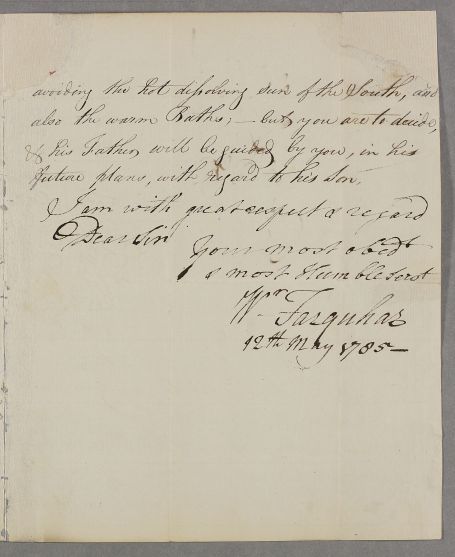 avoiding the hot dissolving sun of the South, and
also the warm Baths; — but you are to decide,
& his Father will be guided by you, in his
future plans, with regard to his Son.
I am with great respect & regard
Dear Sir
Your most obedt
& most Humble Servt
Wm
Farquhar
12th May 1785—